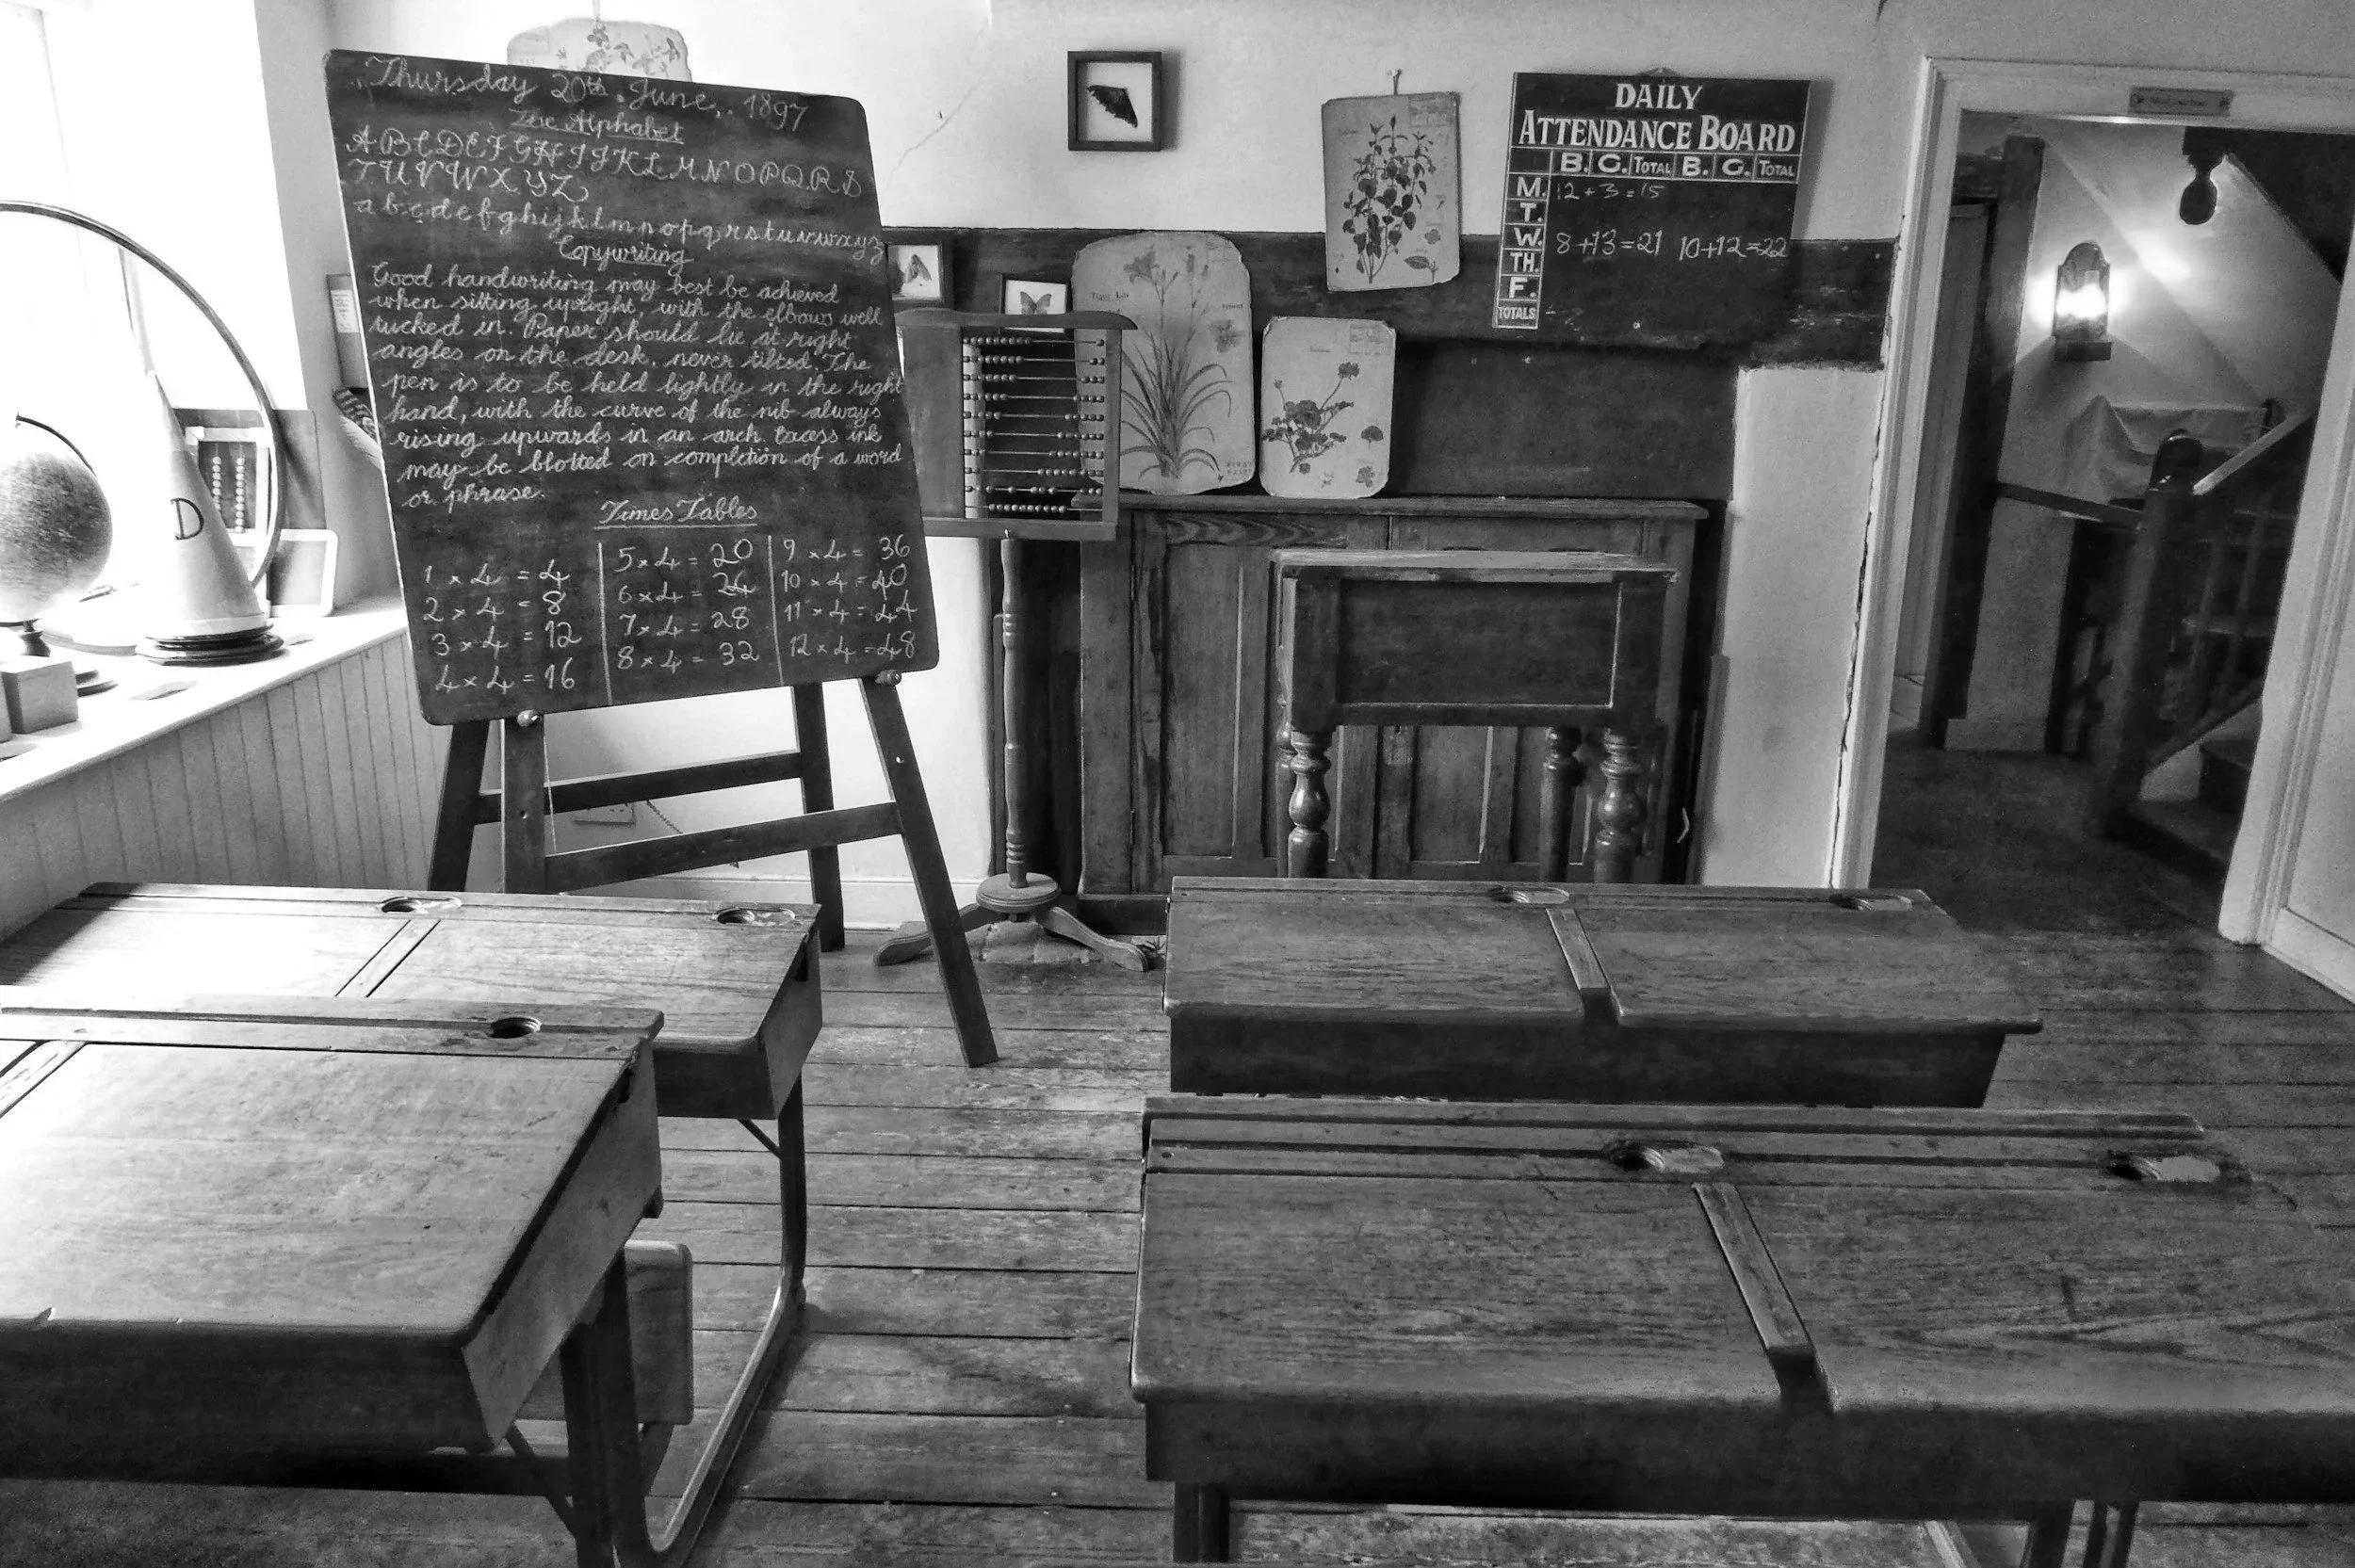 Thursday 20th June, 1897
The Alphabet
A B C D E F G H I J K L M N O P Q R S
T U V W X Y Z
a b c d e f g h i j k l m n o p q r s t u v w x y z
Copywriting
Good handwriting may best be achieved
when sitting upright, with the elbows well
tucked in. Paper should lie at right
angles on the desk, never tilted. The
pen is to be held lightly in the right
hand, with the curve of the nib always
rising upwards in an arch. Excess ink
may be blotted on completion of a word
or phrase.
Times Tables
1 x 4 = 4
2 x 4 = 8
3 x 4 = 12
4 x 4 = 16
5 x 4 = 20
6 x 4 = 24
7 x 4 = 28
8 x 4 = 32
9 x 4 = 36
10 x 4 = 40
11 x 4 = 44
12 x 4 = 48
D
DAILY
ATTENDANCE BOARD
B. G. TOTAL B. G. TOTAL
M. 12 + 3 = 15
T.
W. 8 + 13 = 21 10 + 12 = 22
TH.
F.
TOTALS